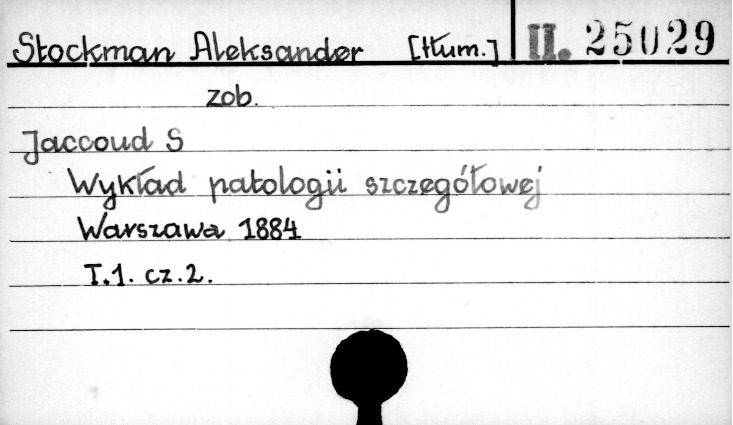 Stockman Aleksander [tłum.] II. 25029
zob.
Jaccoud S
Wykład patologii szczegółowej
Warszawa 1884
T.1. cz.2.